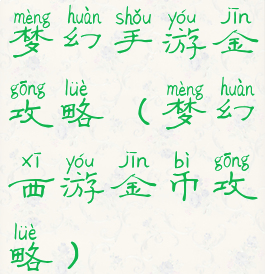 mèng huàn shǒu yóu jīn
梦幻手游金
gōng lüè mèng huàn
攻略（梦幻
xī yóu jīn bì gōng
西游金币攻
lüè
略）